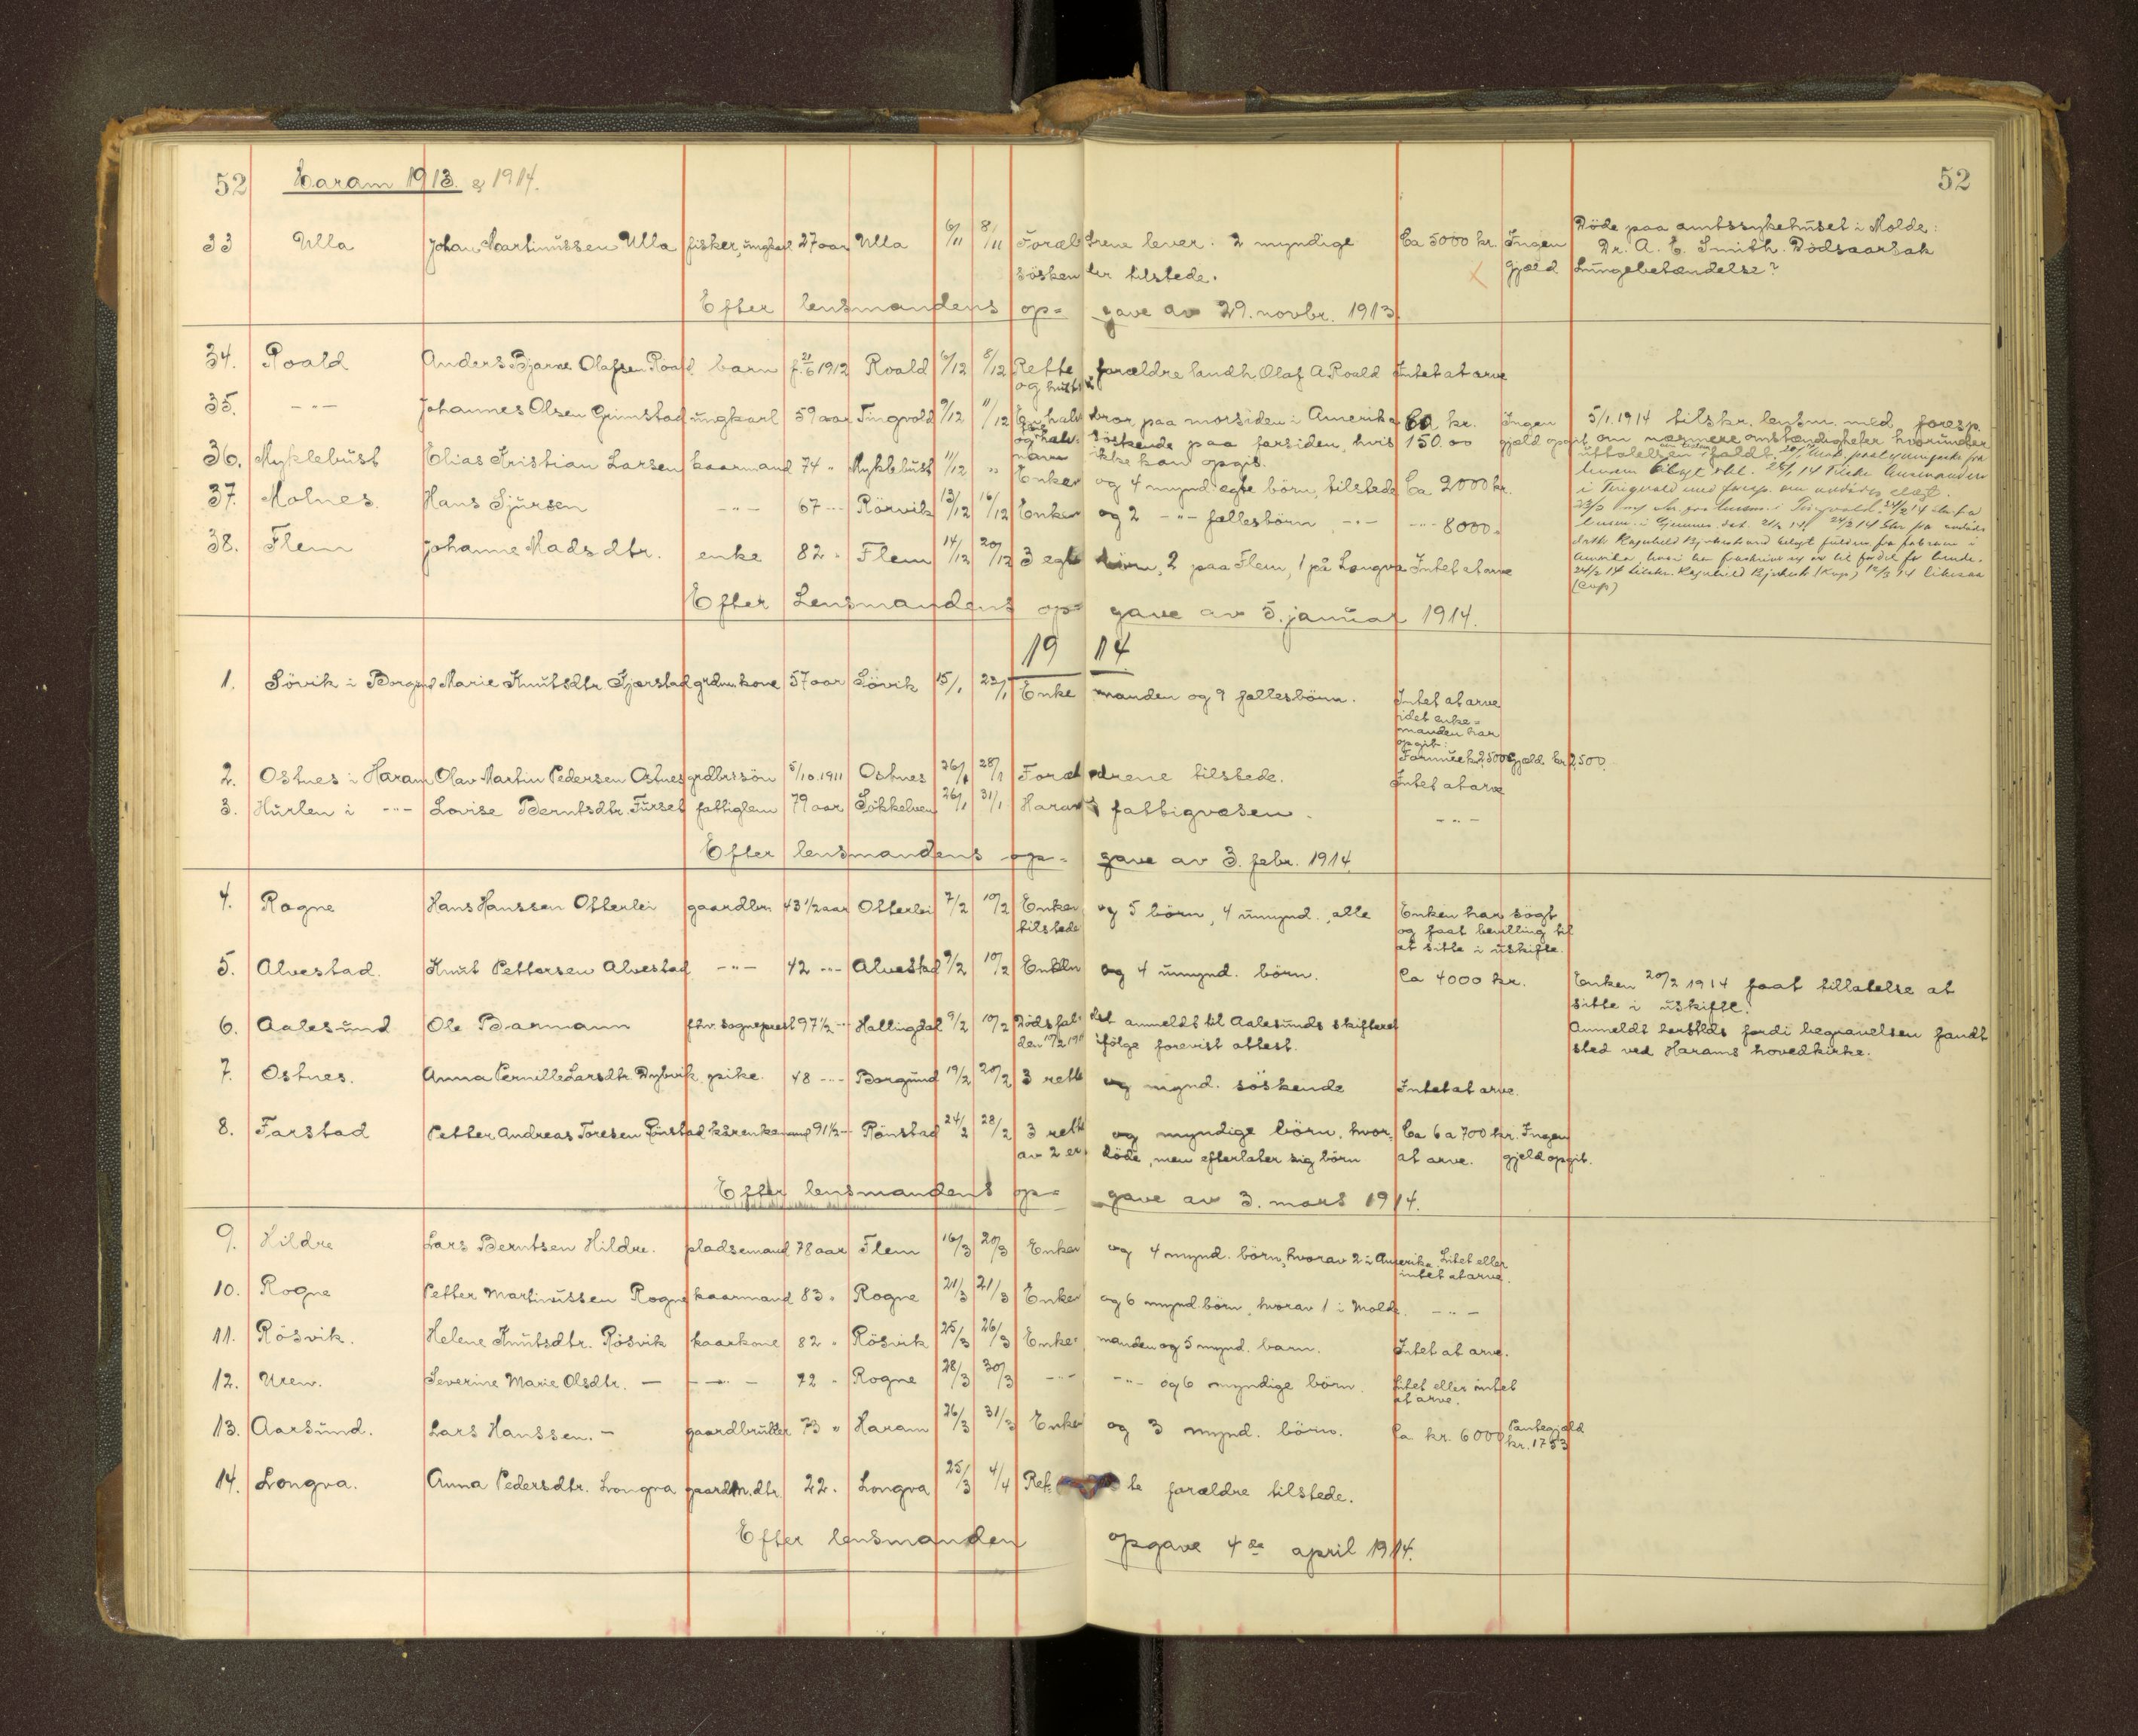 52 Haram 1913 & 1914. 52
33 Ulla Johan Martinussen Ulla fisker, ungkarl 27 aar Ulla 6/11 8/11 Foræl drene lever. 2 myndige Ca 5000 kr. Ingen Döde paa amtssykehuset i Molde:
søsken der tilstede. gjæld Dr. A. C. Smith. Dödsaarsak
Lungebetændelse?
Efter lensmandens op= gave av 29. novbr. 1913.
34. Roald Anders Bjarne Olafsen Roald barn f. 21/6 1912 Roald 6/12 8/12 Rette forældre landh. Olaf A. Roald Intet at arve
og hustru
35. -"- Johannes Olsen Grimstad ungkarl 59 aar Tingvold 9/12 11/12 En halv bror paa morsiden i Amerika Ca kr. Ingen 5/1 1914 tilskr. lensm. med foresp.
og halv= söskende paa farsiden, hvis 150.00 gjæld opgit om nærmere omstændigheter hvorunder
navn ikke kan opgis.
36. Myklebust Elias Kristian Larsen kaarmand 74 " Myklebust 11/12 " Enken og 4 mynd. egte börn, tilstede Ca 2000 kr.
37. Molnes. Hans Sjursen -"- 67 -"- Rörvik 13/12 16/12 Enken og 2 -"- fællesbörn -"- -"- 8000 "
38. Flem Johanne Madsdtr. enke 82 " Flem 14/12 20/12 3 egte börn, 2 paa Flem, 1 på Longva Intet at arve
Efter Lensmandens op= gave av 5. januar 1914.
19 14
1. Sövik i Borgund Marie Knutsdtr Gjærstad grdm. kone 57 aar Sövik 15/1 22/1 Enke manden og 9 fællesbörn. Intet at arve
idet enke=
manden har
opgit:
Formue kr 2500 Gjæld kr 2500.
2. Ostnes i Haram Olav Martin Pedersen Ostnes grdbrs sön 5/10. 1911 Ostnes 26/1 28/1 Foræl drene tilstede. Intet at arve
3. Hurlen i -"- Lovise Berntsdtr. Furset fattiglem 79 aar Sökkelven 26/1 31/1 Harams fattigvæsen. -"-
Efter lensmandens op= gave av 3. febr. 1914.
4. Rogne Hans Hanssen Otterlei gaardbr. 43 1/2 aar Otterlei 7/2 10/2 Enken og 5 börn, 4 umynd., alle Enken har sögt
tilstede og faat bevilling til
at sitte i uskifte.
5. Alvestad. Knut Pettersen Alvestad -"- 42 -"- Alvestad 9/2 10/2 Enken og 4 umynd. börn. Ca 4000 kr. Enken 20/2 1914 faat tillatelse at
sitte i uskifte.
6. Aalesund Ole Barmann fhv. sogneprest 97 1/2 -"- Hallingdal 9/2 10/2 Dödsfal= det anmeldt til Aalesunds skifteret Anmeldt herstds fordi begravelsen fandt
den 10/2 1914 ifölge forevist attest. sted ved Harams hovedkirke.
7. Ostnes. Anna Pernille Larsdtr. Dybvik pike. 48 -"- Borgund 19/2 20/2 3 rette og mynd. söskende Intet at arve.
8. Farstad Petter Andreas Toresen Rönstad kårenkemand 91 1/2 -"- Rönstad 24/2 28/2 3 rette og myndige börn, hvor= Ca 6 a 700 kr. Ingen
av 2 er döde, men efterlater sig börn at arve. gjeld opgit.
Efter lensmandens op= gave av 3. mars 1914.
9. Hildre Lars Berntsen Hildre. pladsemand 78 aar Flem 16/3 20/3 Enken og 4 mynd. börn, hvorav 2 i Amerika. Litet eller
intet at arve.
10. Rogne Petter Martinussen Rogne kaarmand 83 " Rogne 21/3 21/3 Enken og 6 mynd. börn, hvorav 1 i Molde. -"-
11. Rösvik. Helene Knutsdtr. Rösvik kaarkone 82 " Rösvik 25/3 26/3 Enke= manden og 5 mynd. barn. Intet at arve.
12. Uren. Severine Marie Olsdtr. — -"- 72 " Rogne 28/3 30/3 -"- -"- og 6 myndige börn. Litet eller intet
at arve.
13. Aarsund. Lars Hanssen. — gaardbruker 73 " Haram 26/3 31/3 Enken og 3 mynd. börn. Ca. kr. 6000 Pantegjæld
kr. 1753
14. Longva. Anna Pedersdtr. Longva gaardm. dtr. 22. Longva 25/3 4/4 Ret= te forældre tilstede.
Efter lensmanden opgave 4de april 1914.